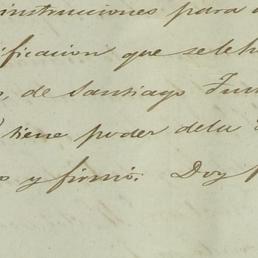 instrucciones para
ificacion que se le h
, de Santiago
tiene poder dela
o y firmó. Doy f